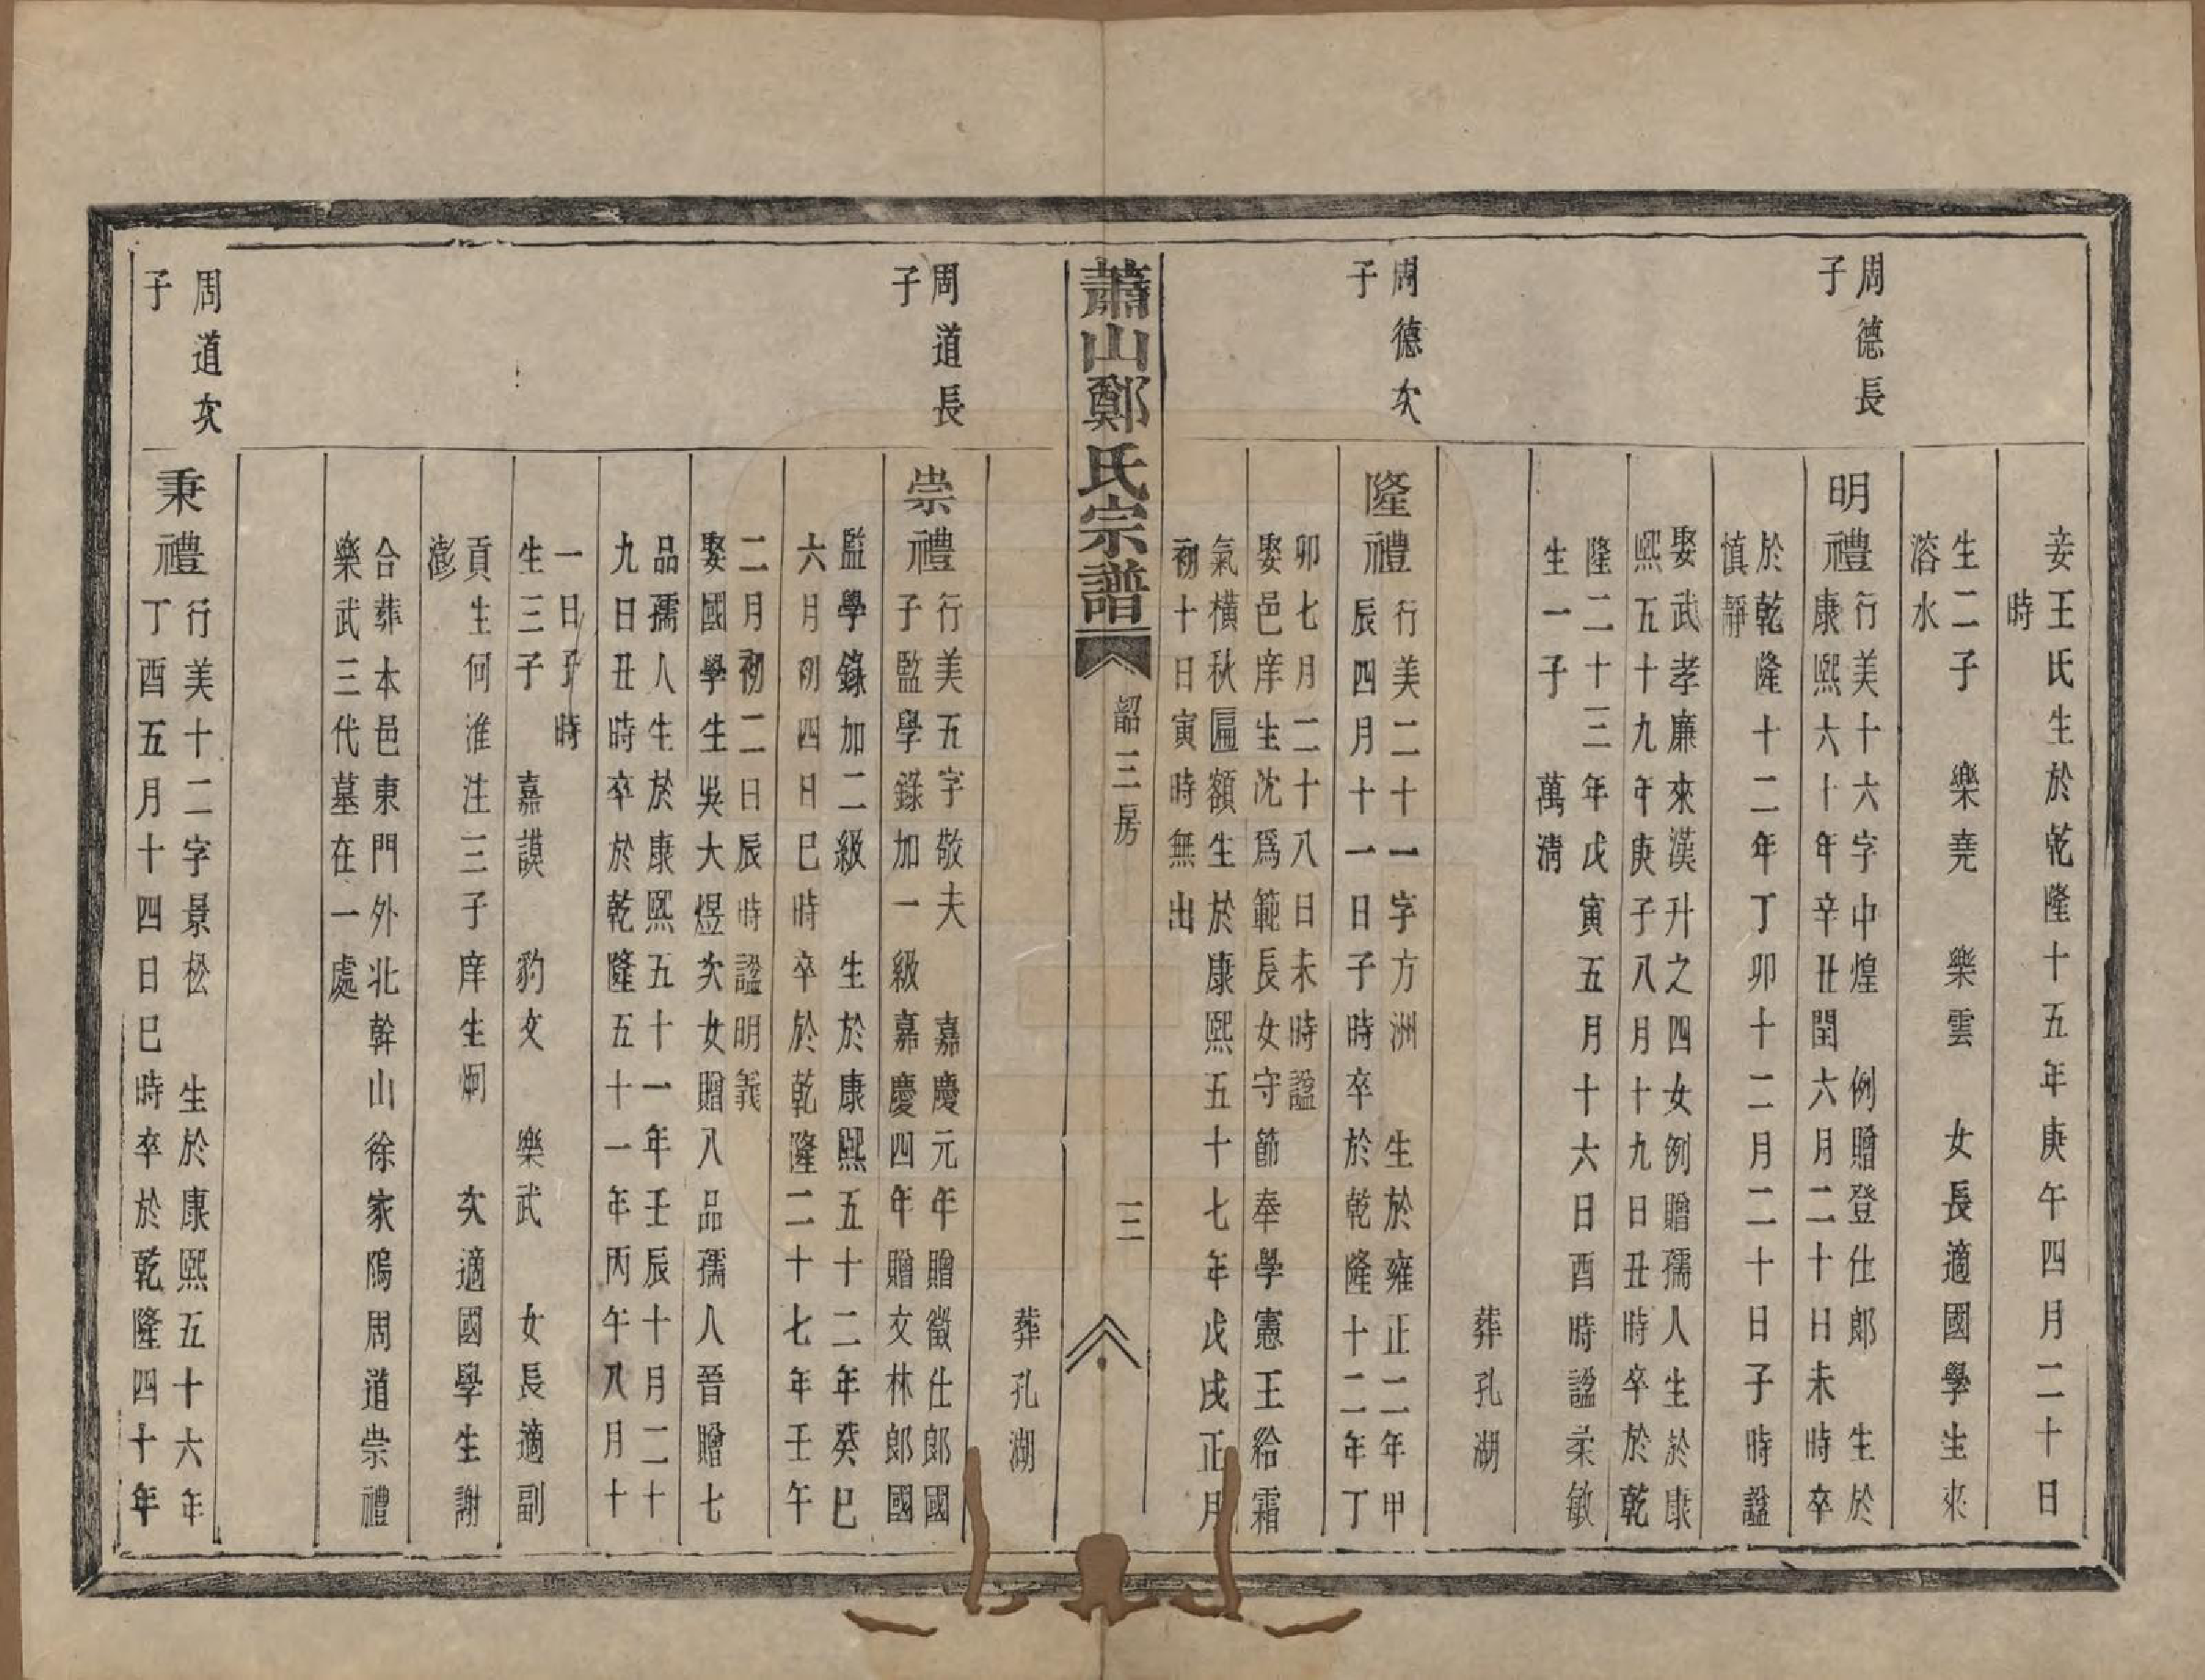 妾王氏生於乾隆十五年庚午四月二十日
時
生二子　樂堯　樂雲　女長適國學生來
溶水
周德長
子
明禮行美十六字中煌　例贈登仕郎　生於
康熙六十年辛丑閏六月二十日未時卒
於乾隆十二年丁卯十二月二十日子時諡
慎靜
娶武孝廉來漢升之四女例贈孺人生於康
熙五十九年庚子八月十九日丑時卒於乾
隆二十三年戊寅五月十六日酉時諡柔敏
生一子　萬清
葬孔湖
周德次
子
隆禮行美二十一字方洲　生於雍正二年甲
辰四月十一日子時卒於乾隆十二年丁
卯七月二十八日未時諡
娶邑庠生沈爲範長女守節奉學憲王給霜
氣橫秋匾額生於康熙五十七年戊戌正月
初十日寅時無出
蕭山鄭氏宗譜
韶三房
三
葬孔湖
周道長
子
崇禮行美五字敬夫　嘉慶元年贈徵仕郎國
子監學錄加一級嘉慶四年贈文林郎國
監學錄加二級　生於康熙五十二年癸巳
六月初四日巳時卒於乾隆二十七年壬午
二月初二日辰時諡明義
娶國學生吳大煜次女贈八品孺人晉贈七
品孺人生於康熙五十一年壬辰十月二十
九日丑時卒於乾隆五十一年丙午八月十
一日子時
生三子　嘉謨　豹文　樂武　女長適副
貢生何淮注三子庠生炯　次適國學生謝
澎
合葬本邑東門外北幹山徐家隖周道崇禮
樂武三代墓在一處
周道次
子
秉禮行美十二字景松　生於康熙五十六年
丁酉五月十四日巳時卒於乾隆四十年